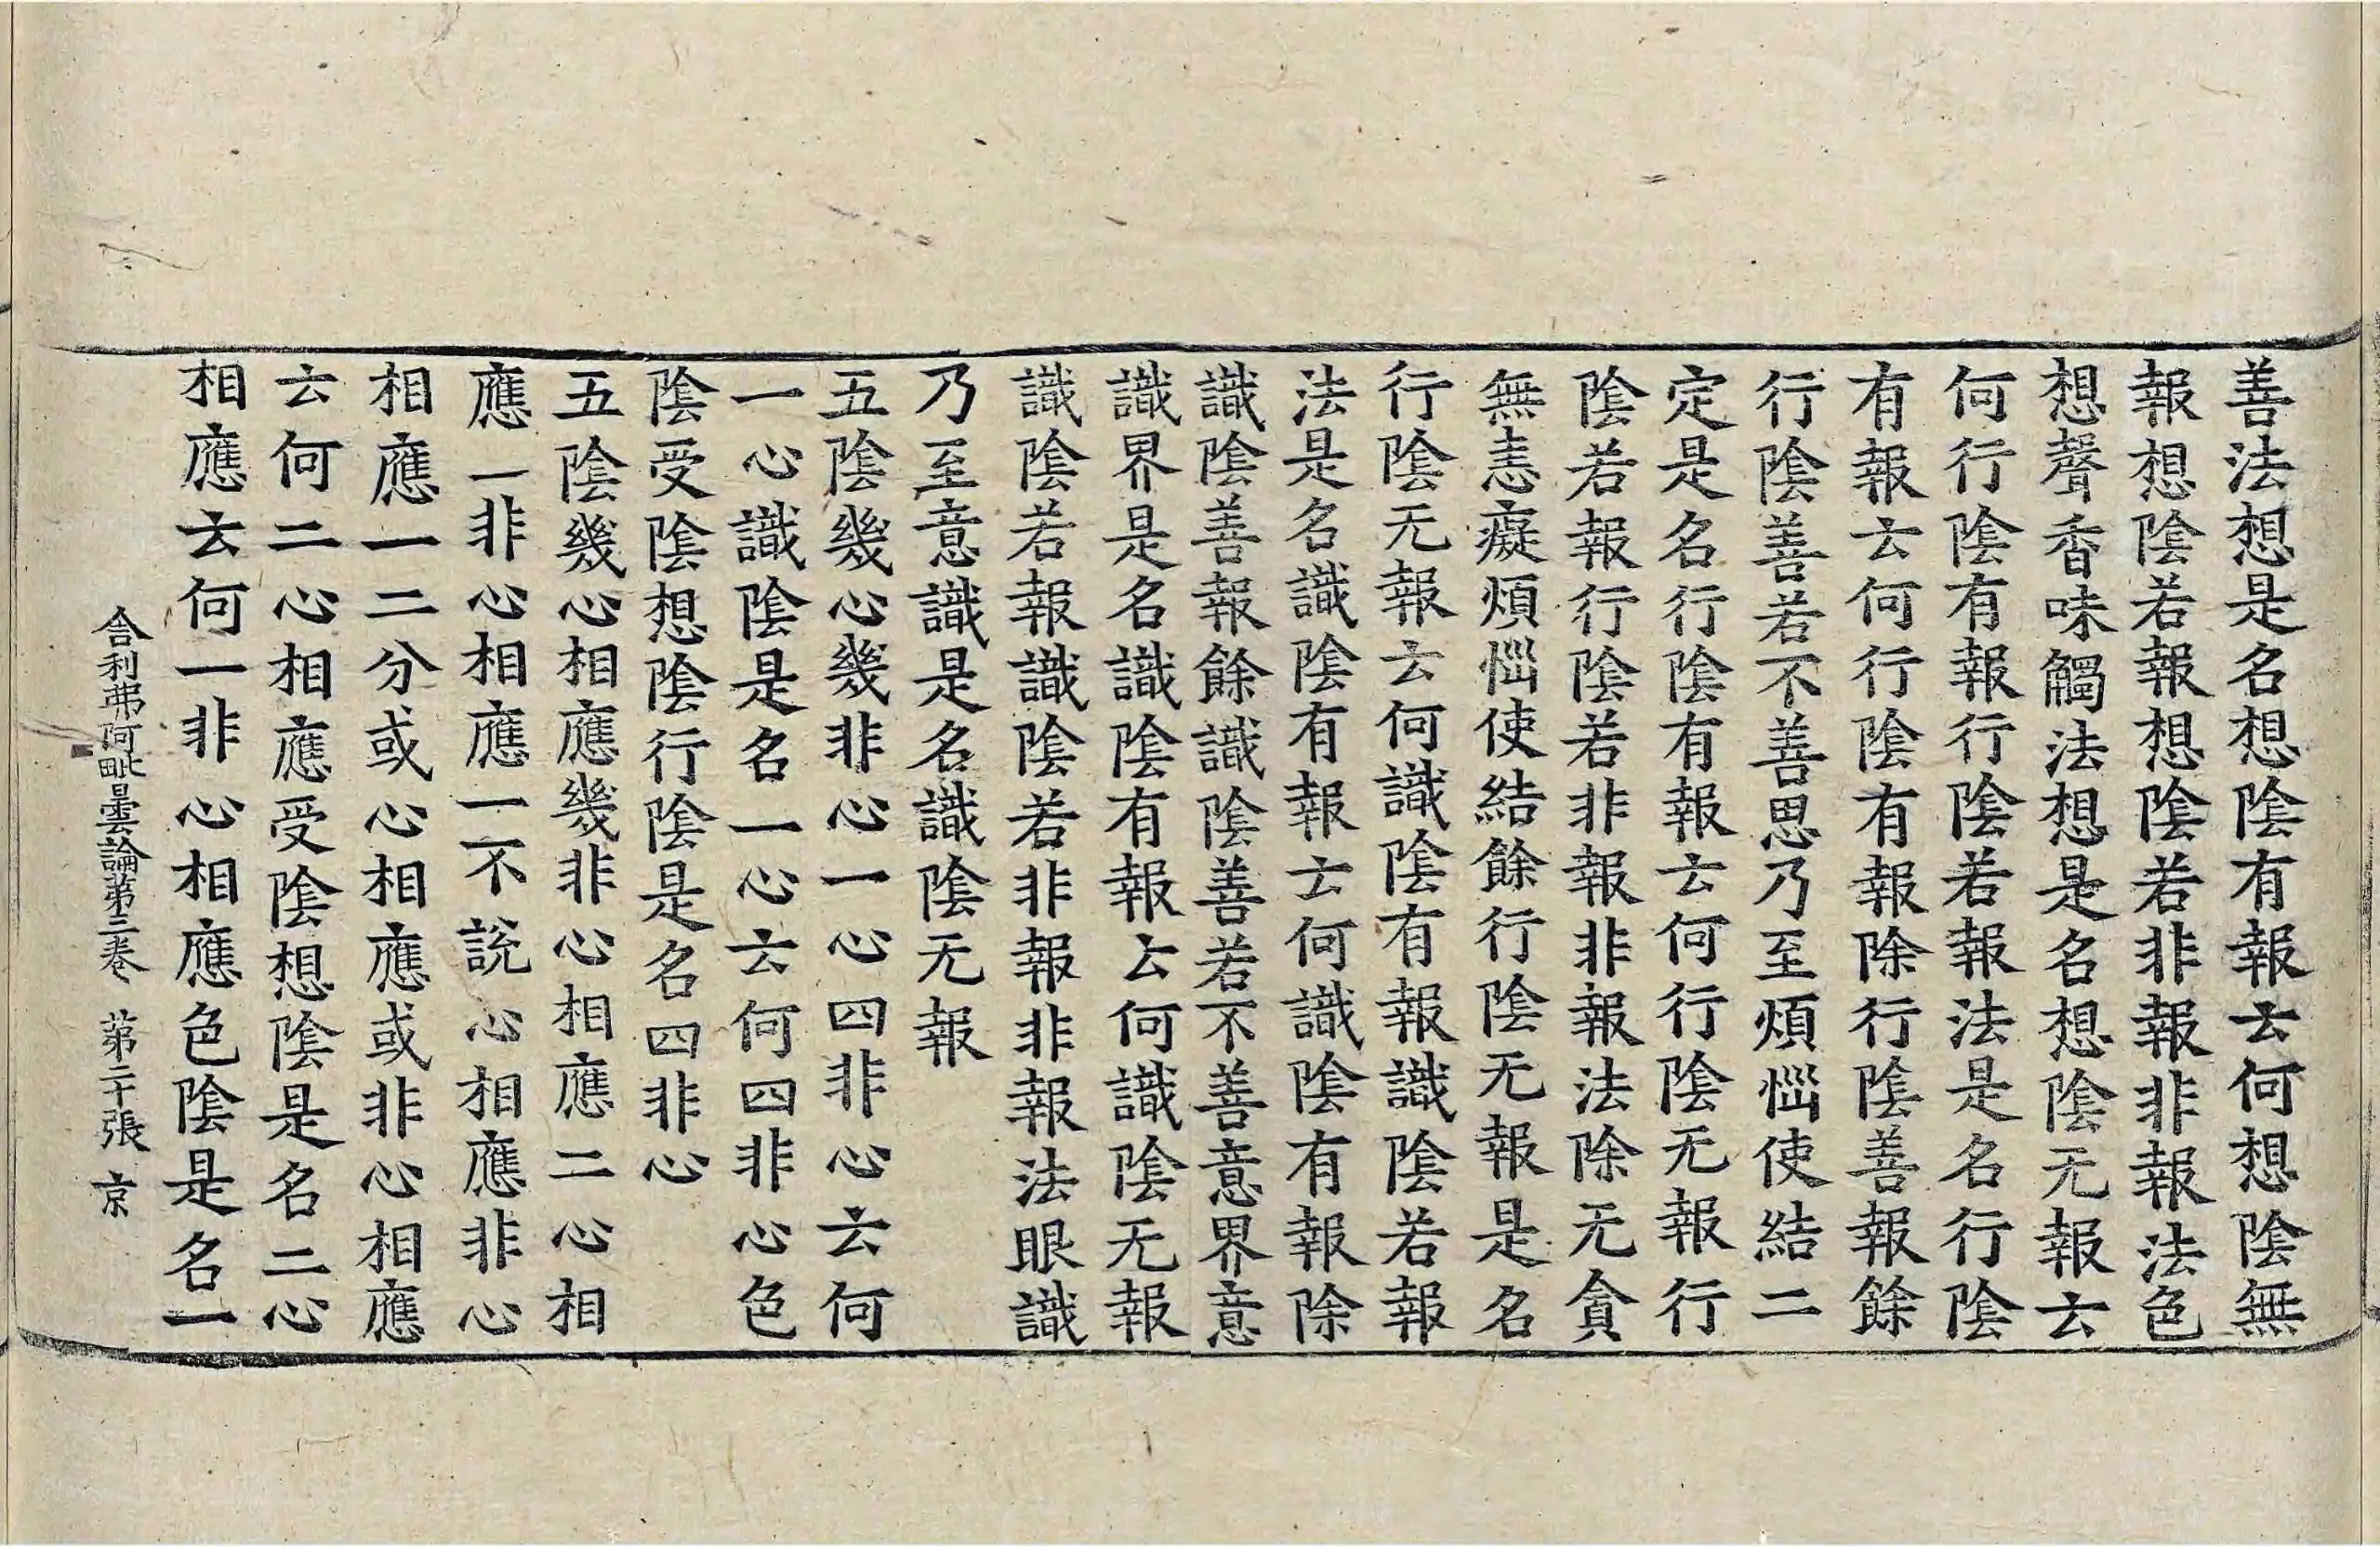 善法想是名想陰有報云何想陰無
報想陰若報想陰若非報非報法色
想聲香味觸法想是名想陰无報云
何行陰有報行陰若報法是名行陰
有報云何行陰有報除行陰善報餘
行陰善若不善思乃至煩惱使結二
定是名行陰有報云何行陰无報行
陰若報行陰若非報非報法除无貪
無恚癡煩惱使結餘行陰无報是名
行陰无報云何識陰有報識陰若報
法是名識陰有報云何識陰有報除
識陰善報餘識陰善若不善意界意
識界是名識陰有報云何識陰无報
識陰若報識陰若非報非報法眼識
乃至意識是名識陰无報
五陰幾心幾非心一心四非心云何
一心識陰是名一心云何四非心色
陰受陰想陰行陰是名四非心
五陰幾心相應幾非心相應二心相
應一非心相應一不說心相應非心
相應一二分或心相應或非心相應
云何二心相應受陰想陰是名二心
相應云何一非心相應色陰是名一
舍利弗阿毗曇論第三卷 第二十張 京